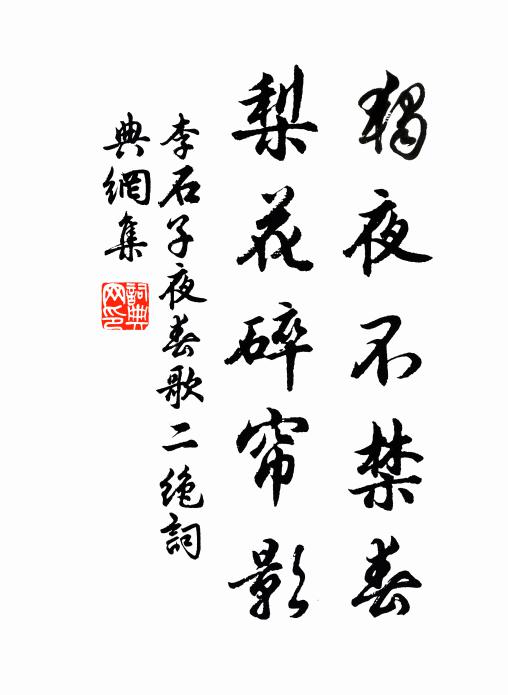 獨夜不禁春
梨花碎帘影
李石子夜春歌二絶詞
典網集
詞典網印